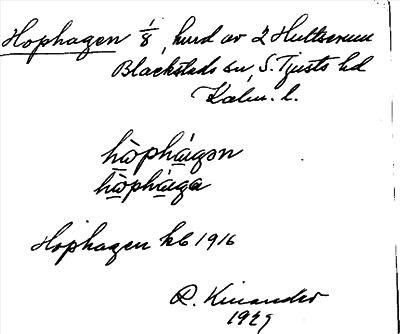 Hophagen 1/8, hurd av 2 Hultserum
Blackstads sn, S. Tjusts hd
Kalm. l.
hòphágən
hòphága
Hophagen kb 1916
R. Kinander
1929